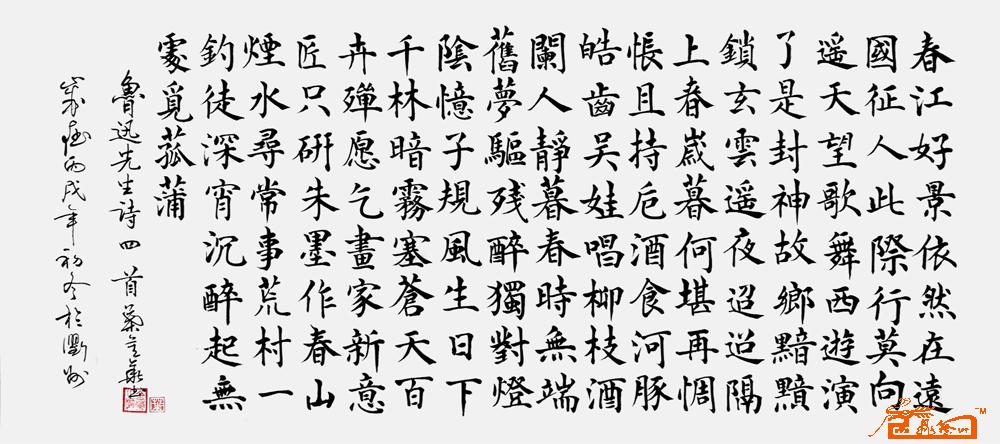 春江好景依然在遠
國征人此際行莫向
遥天望歌舞西遊演
了是封神故鄉黯黯
鎖玄雲遥夜迢迢隔
上春歲暮何堪再惆
悵且持卮酒食河豚
皓齒吳娃唱柳枝酒
闌人靜暮春時無端
舊夢驅残醉獨對燈
陰憶子規風生日下
千林暗霧塞蒼天百
卉殫愿乞畫家新意
匠只研朱墨作春山
煙水尋常事荒村一
釣徒深宵沉醉起無
處覓菰蒲
魯迅先生詩四首
歲丙戌年初冬於衢州